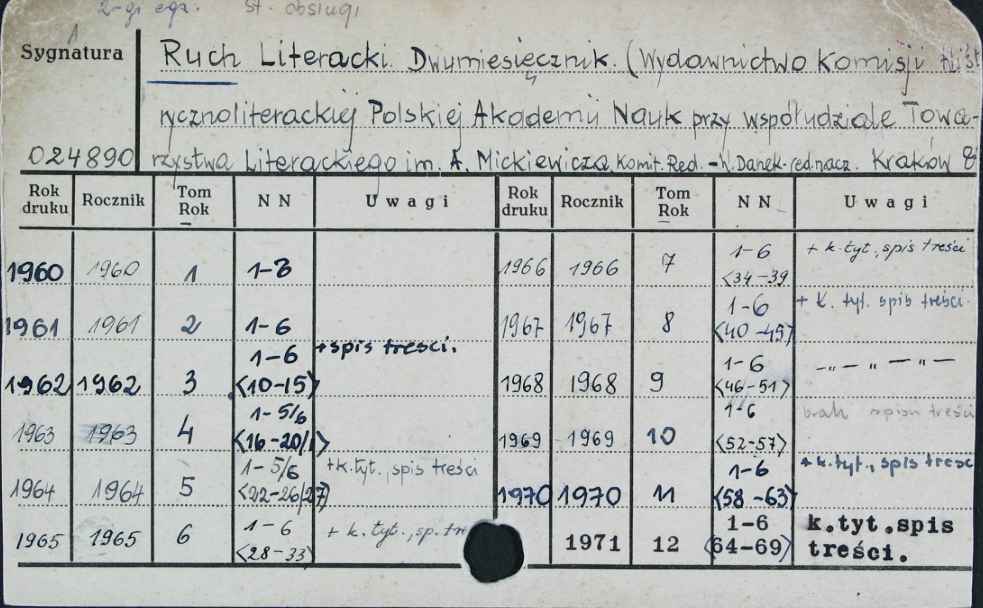 2-gi egz. st. obsługi
Sygnatura Ruch Literacki. Dwumiesięcznik. (Wydawnictwo Komisji Histo
rycznoliterackiej Polskiej Akademii Nauk przy współudziale Towa-
024890 rzystwa Literackiego im. A. Mickiewicza. Komit. Red. - W. Danek-red.nacz. Kraków 8°
Rok druku Rocznik Tom Rok NN Uwagi Rok druku Rocznik Tom Rok NN Uwagi
1960 1960 1 1-3 1966 1966 7 1-6 <34-39 + k.tyt., spis treści
1961 1961 2 1-6 1967 1967 8 1-6 <40-45> + k. tyt. spis treści
1962 1962 3 1-6 <10-15> +spis treści. 1968 1968 9 1-6 <46-51> -„- „ - „ -
1963 1963 4 1-5/6 <16-20/1> 1969 1969 10 1-6 <52-57> brak spisu treści
1964 1964 5 1-5/6 <22-26/27> +k.tyt., spis treści 1970 1970 11 1-6 <58-63> +k.tyt., spis treśc
1965 1965 6 1-6 <28-33> + k.tyt., sp. tre 1971 12 1-6 <64-69> k.tyt.spis treści.